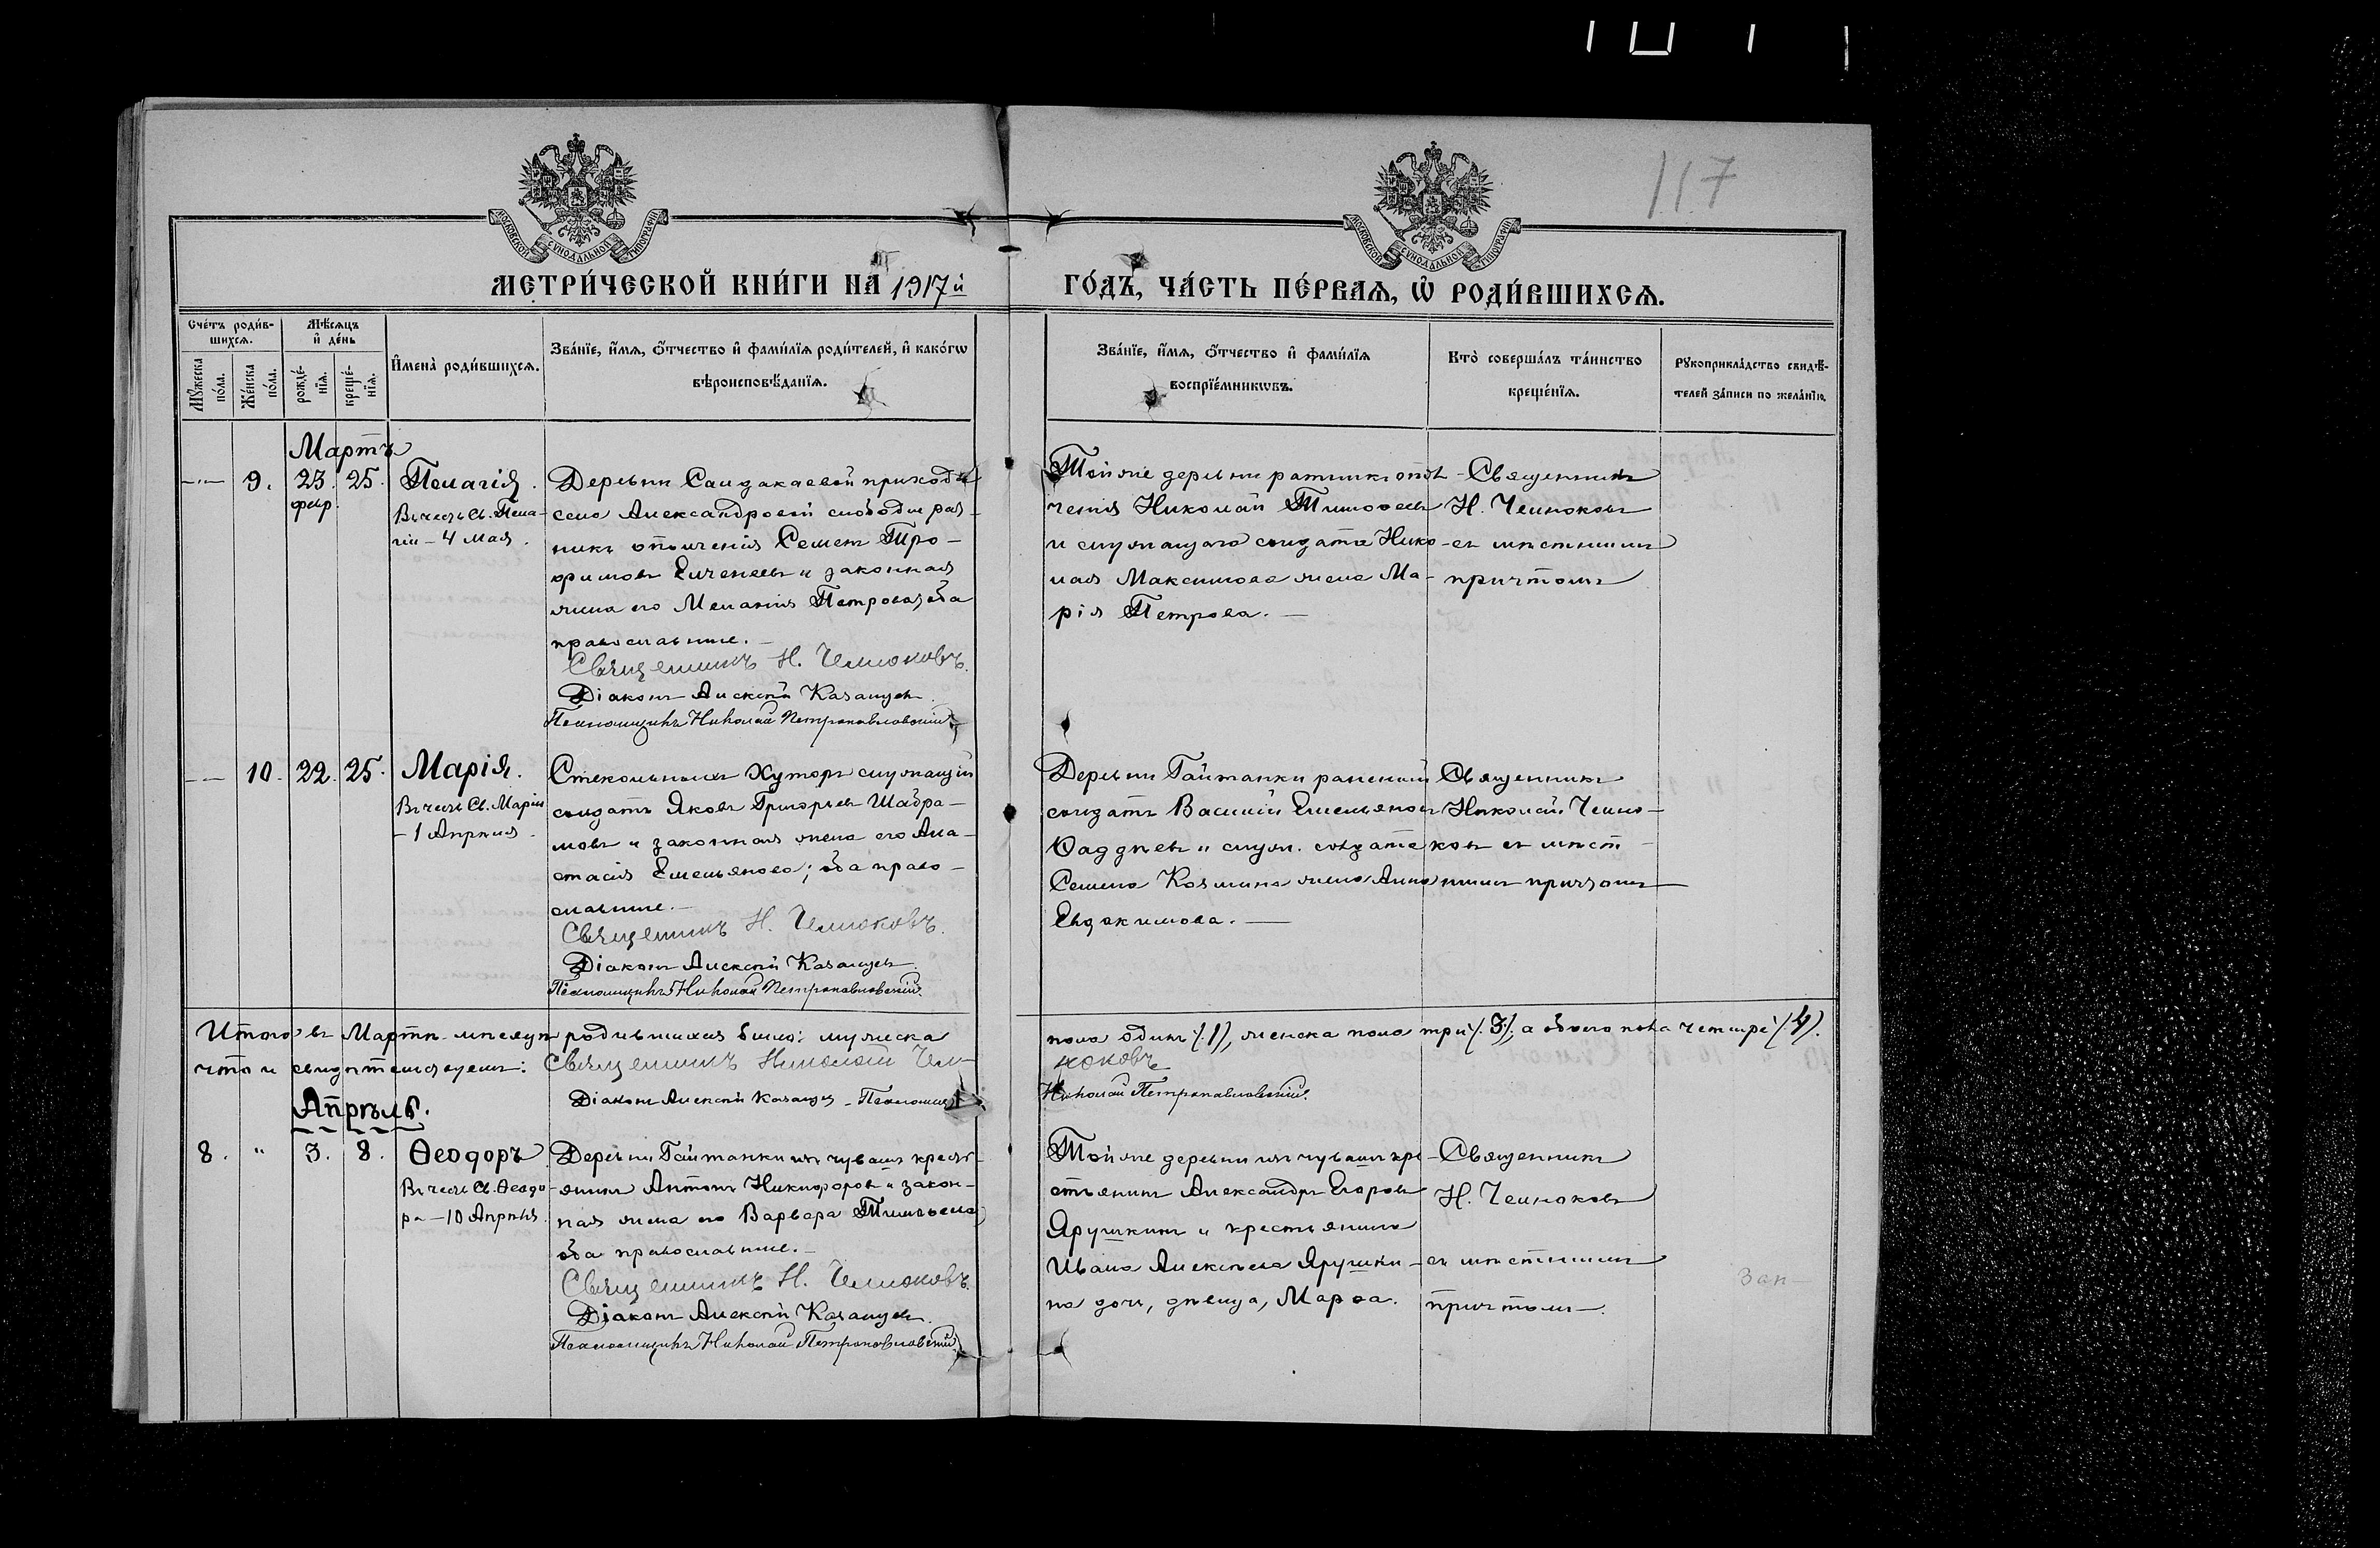 117
МОСКОВСКОЙ СѴНОДАЛЬНОЙ ТИПОГРАФІИ
МОСКОВСКОЙ СѴНОДАЛЬНОЙ ТИПОГРАФІИ
МЕТРИ́ЧЕСКОЙ КНИ́ГИ НА 1917й
ГО́ДЪ, ЧА́СТЬ ПЕ́РВАѦ, Ѡ҆ РОДИ́ВШИХСѦ.
Сче́тъ роди́в-
шихсѧ.
Мꙋ́жеска по́ла.
Же́нска по́ла.
Мѣ́сѧцъ
и҆ де́нь
рожде́-
нїѧ.
креще́-
нїѧ.
И҆мена̀ роди́вшихсѧ.
Зва́нїе, и҆́мѧ, ѻ҆́тчество и҆ фами́лїѧ роди́телей, и҆ како́гѡ
вѣроисповѣ́данїѧ.
Зва́нїе, и҆́мѧ, ѻ҆́тчество и҆ фами́лїѧ
воспрїе́мникѡвъ.
Кто̀ соверша́лъ та́инство
креще́нїѧ.
Рꙋкоприкла́дство свидѣ́-
телей за́писи по жела́нїю.
Мартъ
— 9. 23. 25. Пелагія.
февр.
Въ честь Св. Пела-
гіи – 4 Мая.
Деревни Сандакаевой прихода
села Александровой слободы рат-
никъ ополченія Семенъ Тро-
фимовъ Елченеевъ и законная
жена его Меланія Петрова, оба
православные.—
Священникъ Н. Чемоковъ.
Діаконъ Алексѣй Казанцев.
Псаломщикъ Николай Петропавловскій.
Той же деревни ратникъ опол-
ченія Николай Тимофеевъ
и служащаго солдата Нико-
лая Максимова жена Ма-
рія Петрова.—
Священникъ
Н. Чемоковъ
съ мѣстнымъ
причтомъ
— 10. 22. 25. Марія.
Въ честь Св. Маріи
– 1 Апрѣля.
Стекольныхъ Хуторъ служащій
солдатъ Яковъ Григорьевъ Шабра-
мовъ и законная жена его Ана-
стасія Емельянова; оба право-
славные.—
Священникъ Н. Чемоковъ.
Діаконъ Алексѣй Казанцев.
Псаломщикъ Николай Петропавловскій.
Деревни Гайтанки раненый
солдатъ Василій Емельяновъ
Ѳаддѣевъ и служ. солдата
Семена Козмина жена Анна
Евдокимова.—
Священникъ
Николай Чемо-
ковъ съ мѣст-
нымъ причтомъ
Итого въ Мартѣ мѣсяцѣ родившихся было: мужеска
пола одинъ (1), женска пола три (3), а обоего пола четыре (4).
что и свидѣтельствуемъ: Священникъ Николай Чем-
оковъ
Діаконъ Алексѣй Казанцев – Псаломщикъ
Николай Петропавловскій.
Апрѣль.
8. " 3. 8. Ѳеодоръ
Въ честь Св. Ѳеодо-
ра – 10 Апрѣля.
Деревни Гайтанки изъ чувашъ кресть-
янинъ Антонъ Никифоровъ и закон-
ная жена его Варвара Тимофеева
оба православные.—
Священникъ Н. Чемоковъ.
Діаконъ Алексѣй Казанцев.
Псаломщикъ Николай Петропавловскій.
Той же деревни изъ чувашъ кре-
стьянинъ Александръ Егоровъ
Ярушкинъ и крестьянина
Ивана Алексѣева Ярушки-
на дочь, дѣвица, Марѳа.
Священникъ
Н. Чемоковъ
съ мѣстнымъ
причтомъ.
Зап—